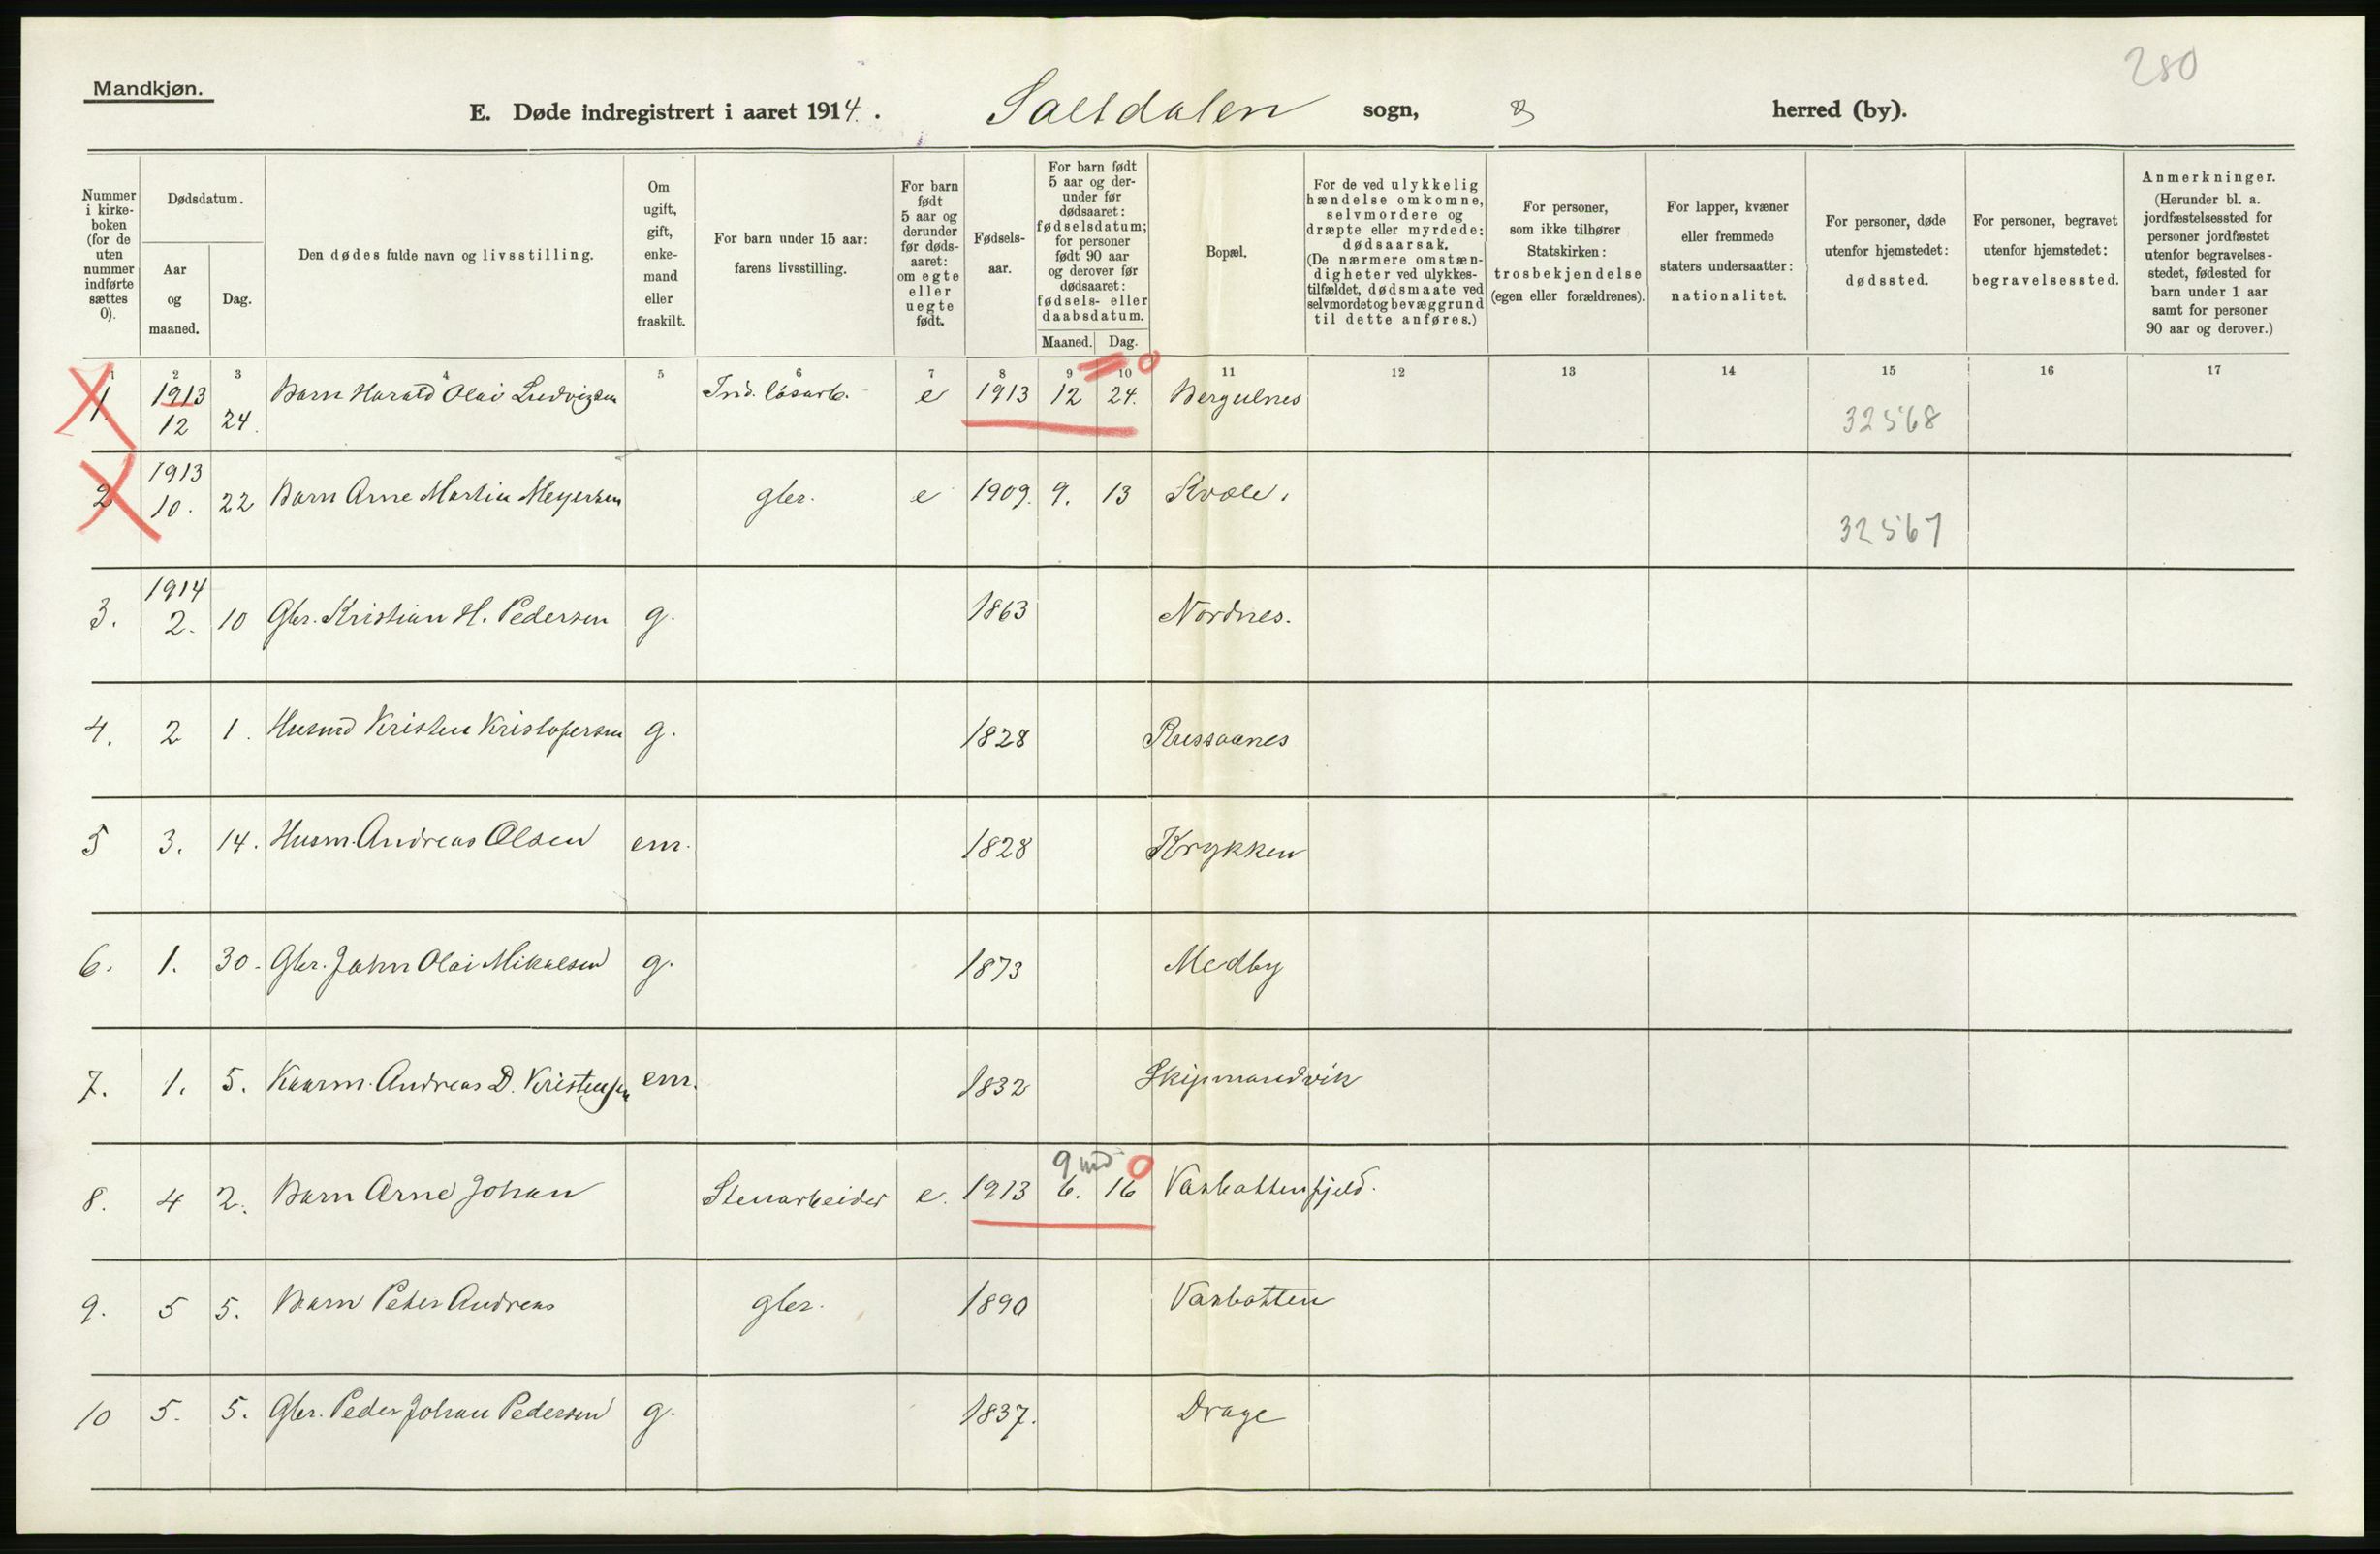 280
Mandkjøn.
E. Døde indregistrert i aaret 1914. Saltdalen sogn, herred (by).
Nummer i kirke-boken (for de uten nummer indførte sættes 0).
Dødsdatum.
Aar og maaned.
Dag.
Den dødes fulde navn og livsstilling.
Om ugift, gift, enke-mand eller fraskilt.
For barn under 15 aar: farens livsstilling.
For barn født 5 aar og derunder før døds-aaret: om egte eller uegte født.
Fødsels-aar.
For barn født 5 aar og der-under før dødsaaret: fødselsdatum; for personer født 90 aar og derover før dødsaaret: fødsels- eller daabsdatum.
Maaned. Dag.
Bopæl.
For de ved ulykkelig hændelse omkomne, selvmordere og dræpte eller myrdede: dødsaarsak. (De nærmere omstæn-digheter ved ulykkes-tilfældet, dødsmaate ved selvmordet og bevæggrund til dette anføres.)
For personer, som ikke tilhører Statskirken: trosbekjendelse (egen eller forældrenes).
For lapper, kvæner eller fremmede staters undersaatter: nationalitet.
For personer, døde utenfor hjemstedet: dødssted.
For personer, begravet utenfor hjemstedet: begravelsessted.
Anmerkninger. (Herunder bl. a. jordfæstelsessted for personer jordfæstet utenfor begravelses-stedet, fødested for barn under 1 aar samt for personer 90 aar og derover.)
1 2 3 4 5 6 7 8 9 10 11 12 13 14 15 16 17
0
1. 1913 12 24. Barn Harald Olai Ludvigsen Ind. løsarb. e 1913 12 24. Bergulnes 32568
2 1913 10. 22 Barn Arne Martin Meyersen gbr. e 1909. 9. 13 Kvæle. 32567
3. 1914 2. 10 Gbr. Kristian H. Pedersen g. 1863 Nordnes.
4. 2 1. Husmd Kristen Kristofersen g. 1828 Russaanes
5 3. 14. Husm. Andreas Olsen em. 1828 Krykken
6. 1. 30. Gbr. John Olai Mikalsen g. 1873 Medby
7. 1. 5. Kaarm. Andreas D. Kristensen em. 1832 Skipmandvik
9 md 0
8. 4 2. Barn Arne Johan Stenarbeider e. 1913 6. 16 Vasbottenfjeld.
9. 5 5. Barn Peter Andreas gbr. 1890 Vasbotten
10 5. 5. Gbr. Peder Johan Pedersen g. 1837. Drage